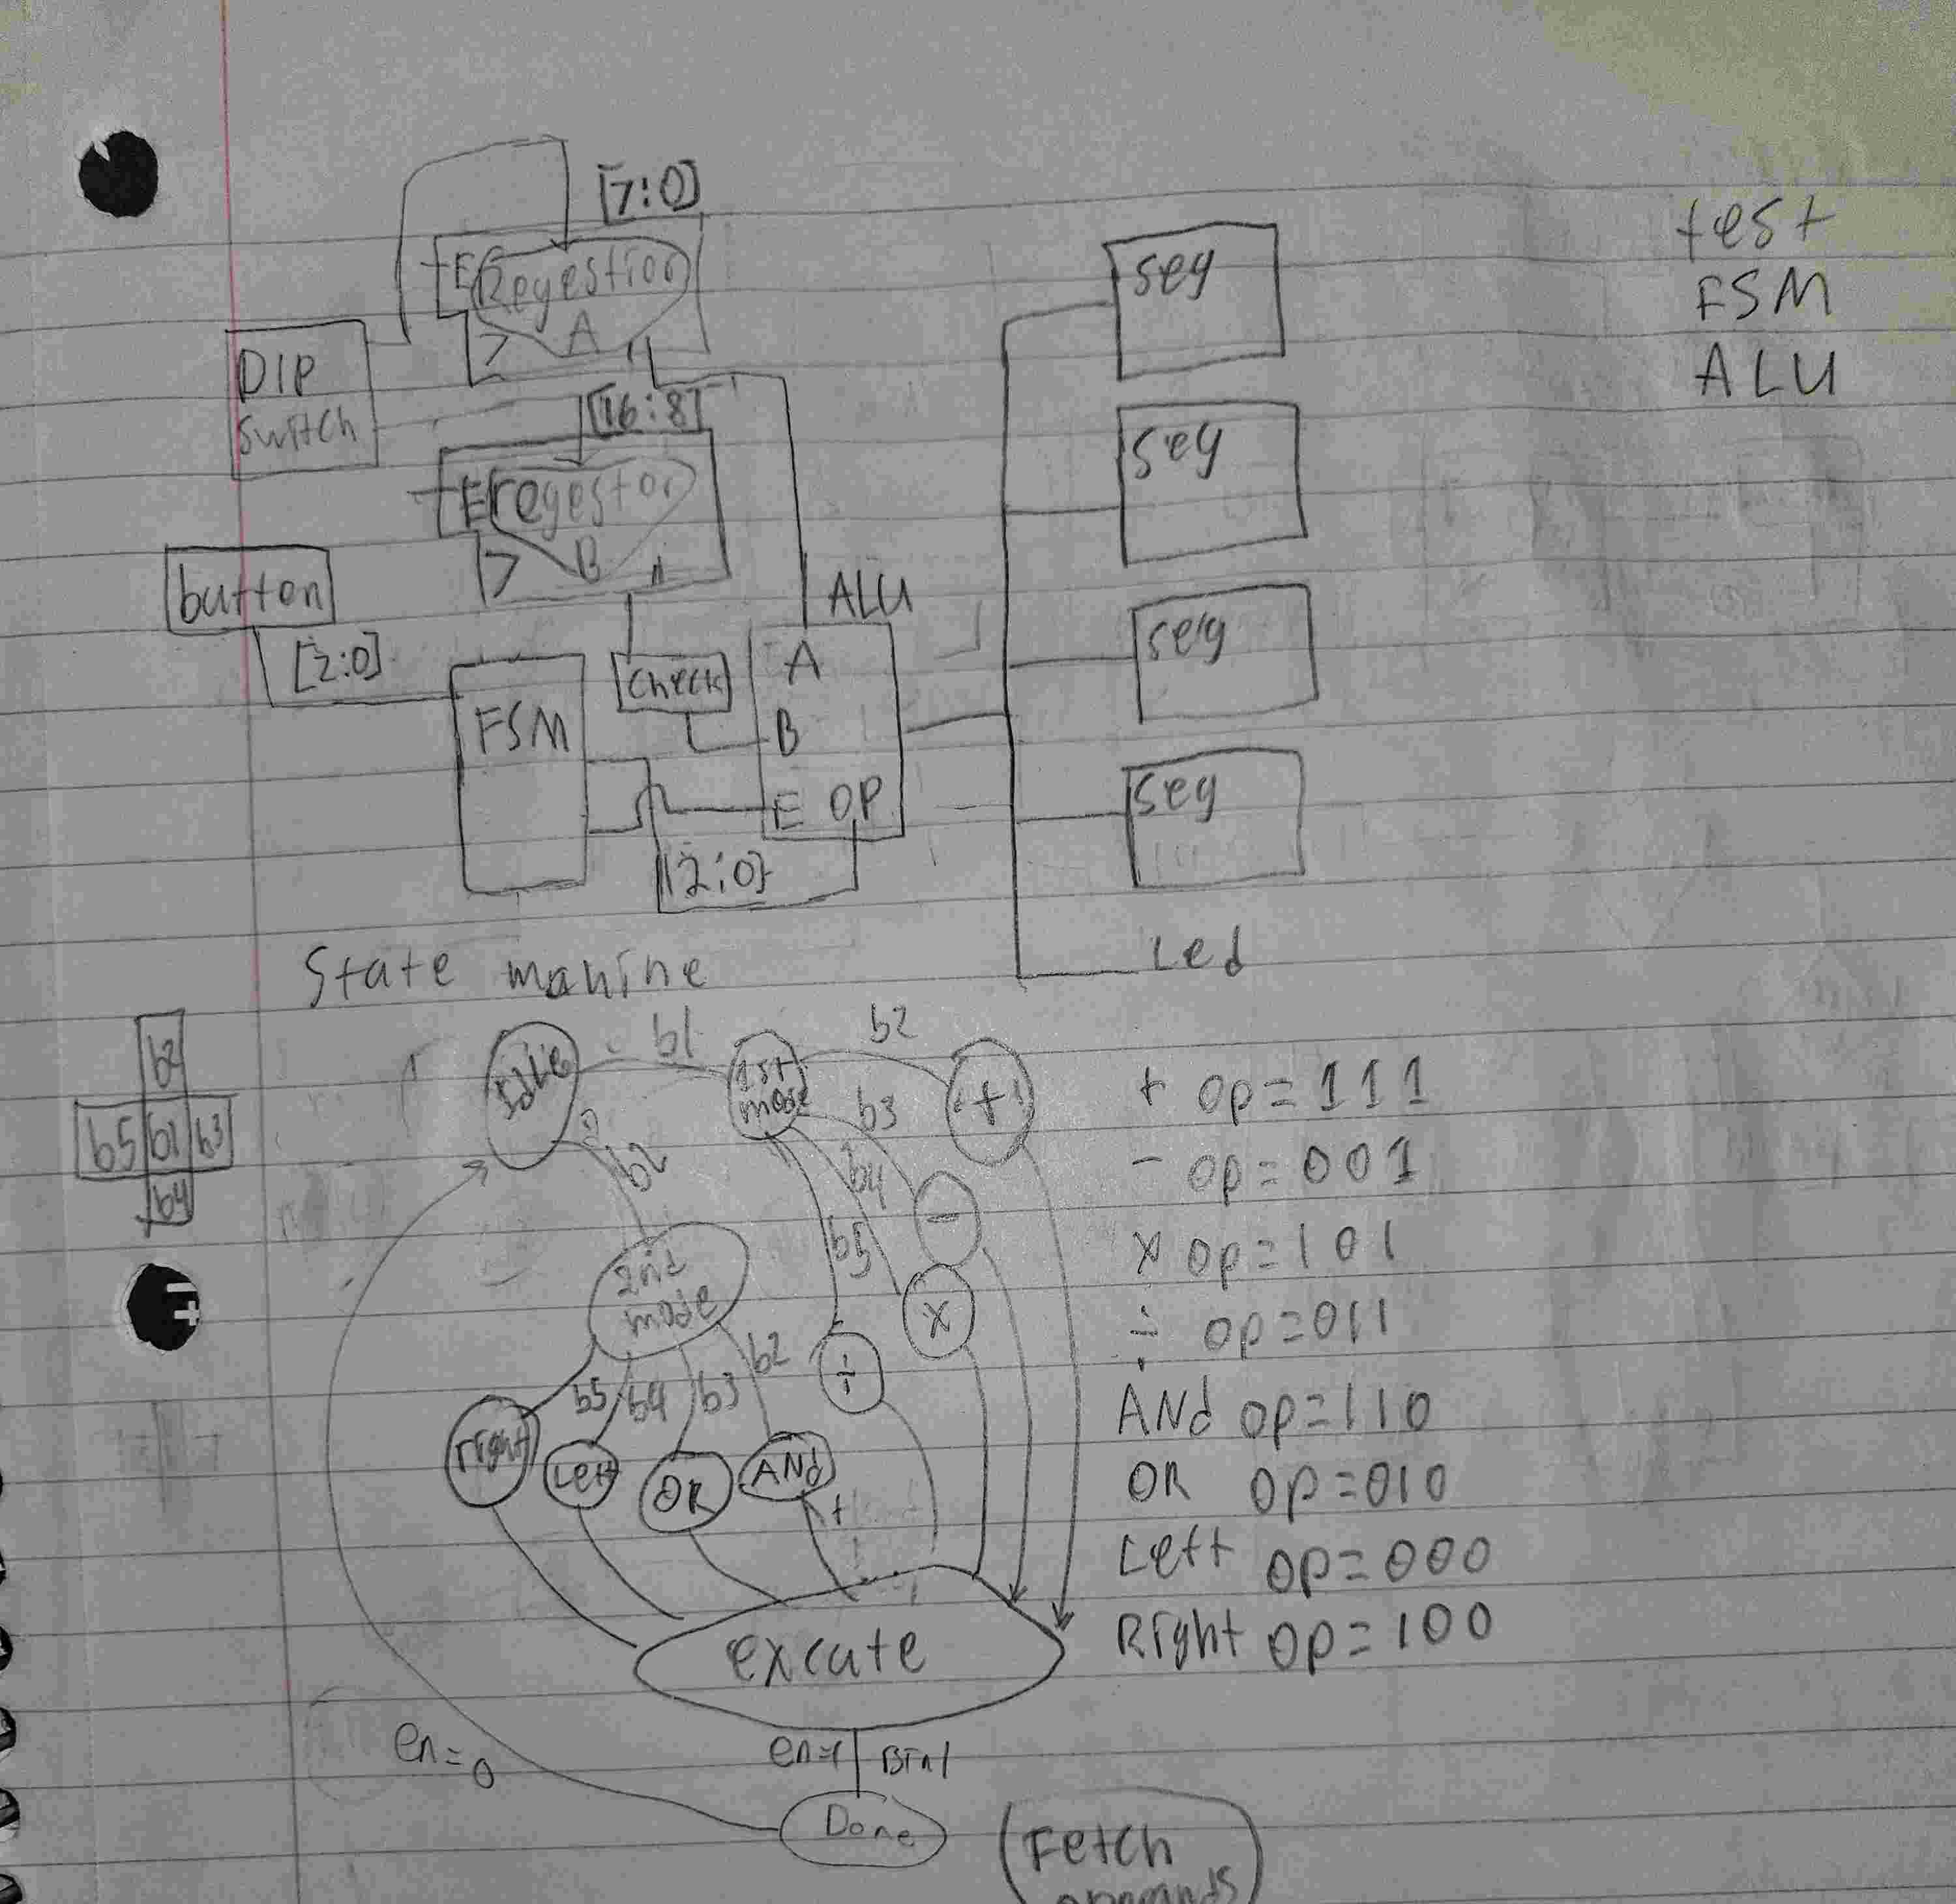 [7:0]
E Regestior
A
DIP
Switch
[16:8]
E regestor
B
button
[2:0]
FSM
Check
ALU
A
B
E OP
[2:0]
seg
seg
seg
seg
Led
test
FSM
ALU
State mahine
b2
b5 b1 b3
b4
b1
1st
mode
b2
+
b3
b4
b5
-
x
÷
b2
2nd
mode
b5 b4 b3 b2
right
Left
OR
AND
excute
en=1 BTn1
en=0
Done
Fetch
+ op=111
- op=001
x op=101
÷ op=011
ANd op=110
OR op=010
Left op=000
Right op=100